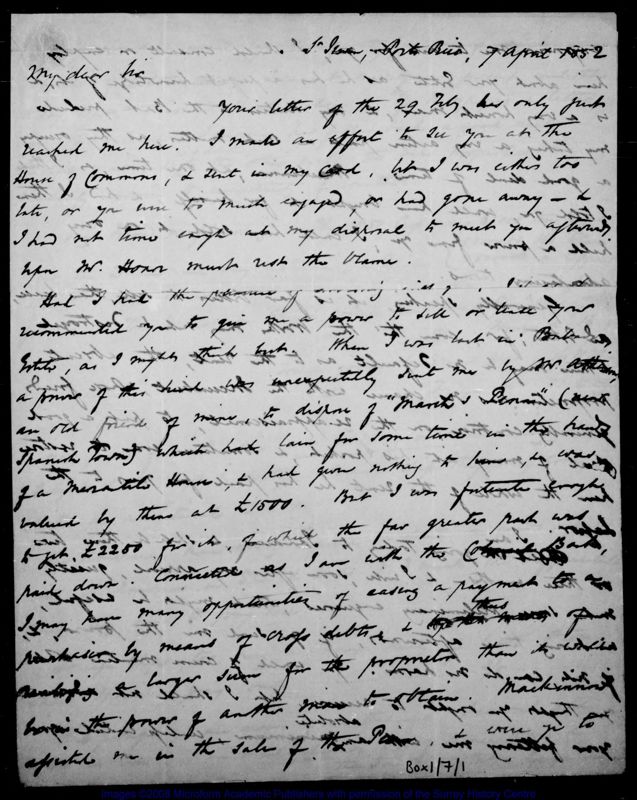 Porto Rico, 7 April 1852
My dear Sir
Your letter of the 29 Feby has only just
reached me here. I made an effort to see you at the
House of Commons, & sent in my card, but I was either too
late, or you were too much engaged, or had gone away - &
I had not time enough at my disposal to meet you afterwards
upon Mr. must rest the blame.
Had I had the pleasure of seeing I
recommended you to give me a power to sell or lease your
Estates, as I might think best. When I was last in
a power of this kind was unexpectedly sent me by
an old friend of mine, to dispose of "March's Penn" (near
Spanish Town) which had lain for some time in the hands
of a Mercantile House, & had given nothing to him, & was
valued by them at £1500. But I was fortunate enough
to get £2250 for it, of which the far greater part was
paid down. Connected as I am with the Colonial Bank,
I may have many opportunities of easing a payment to a
purchaser by means of cross debts, & thus
a larger sum for the proprietor than it would
be in the power of another man to obtain. Mackinnon
assisted me in the sale of Penn. were you to
Box1/7/1
Images ©2008 Microform Academic Publishers with permission of the Surrey History Centre